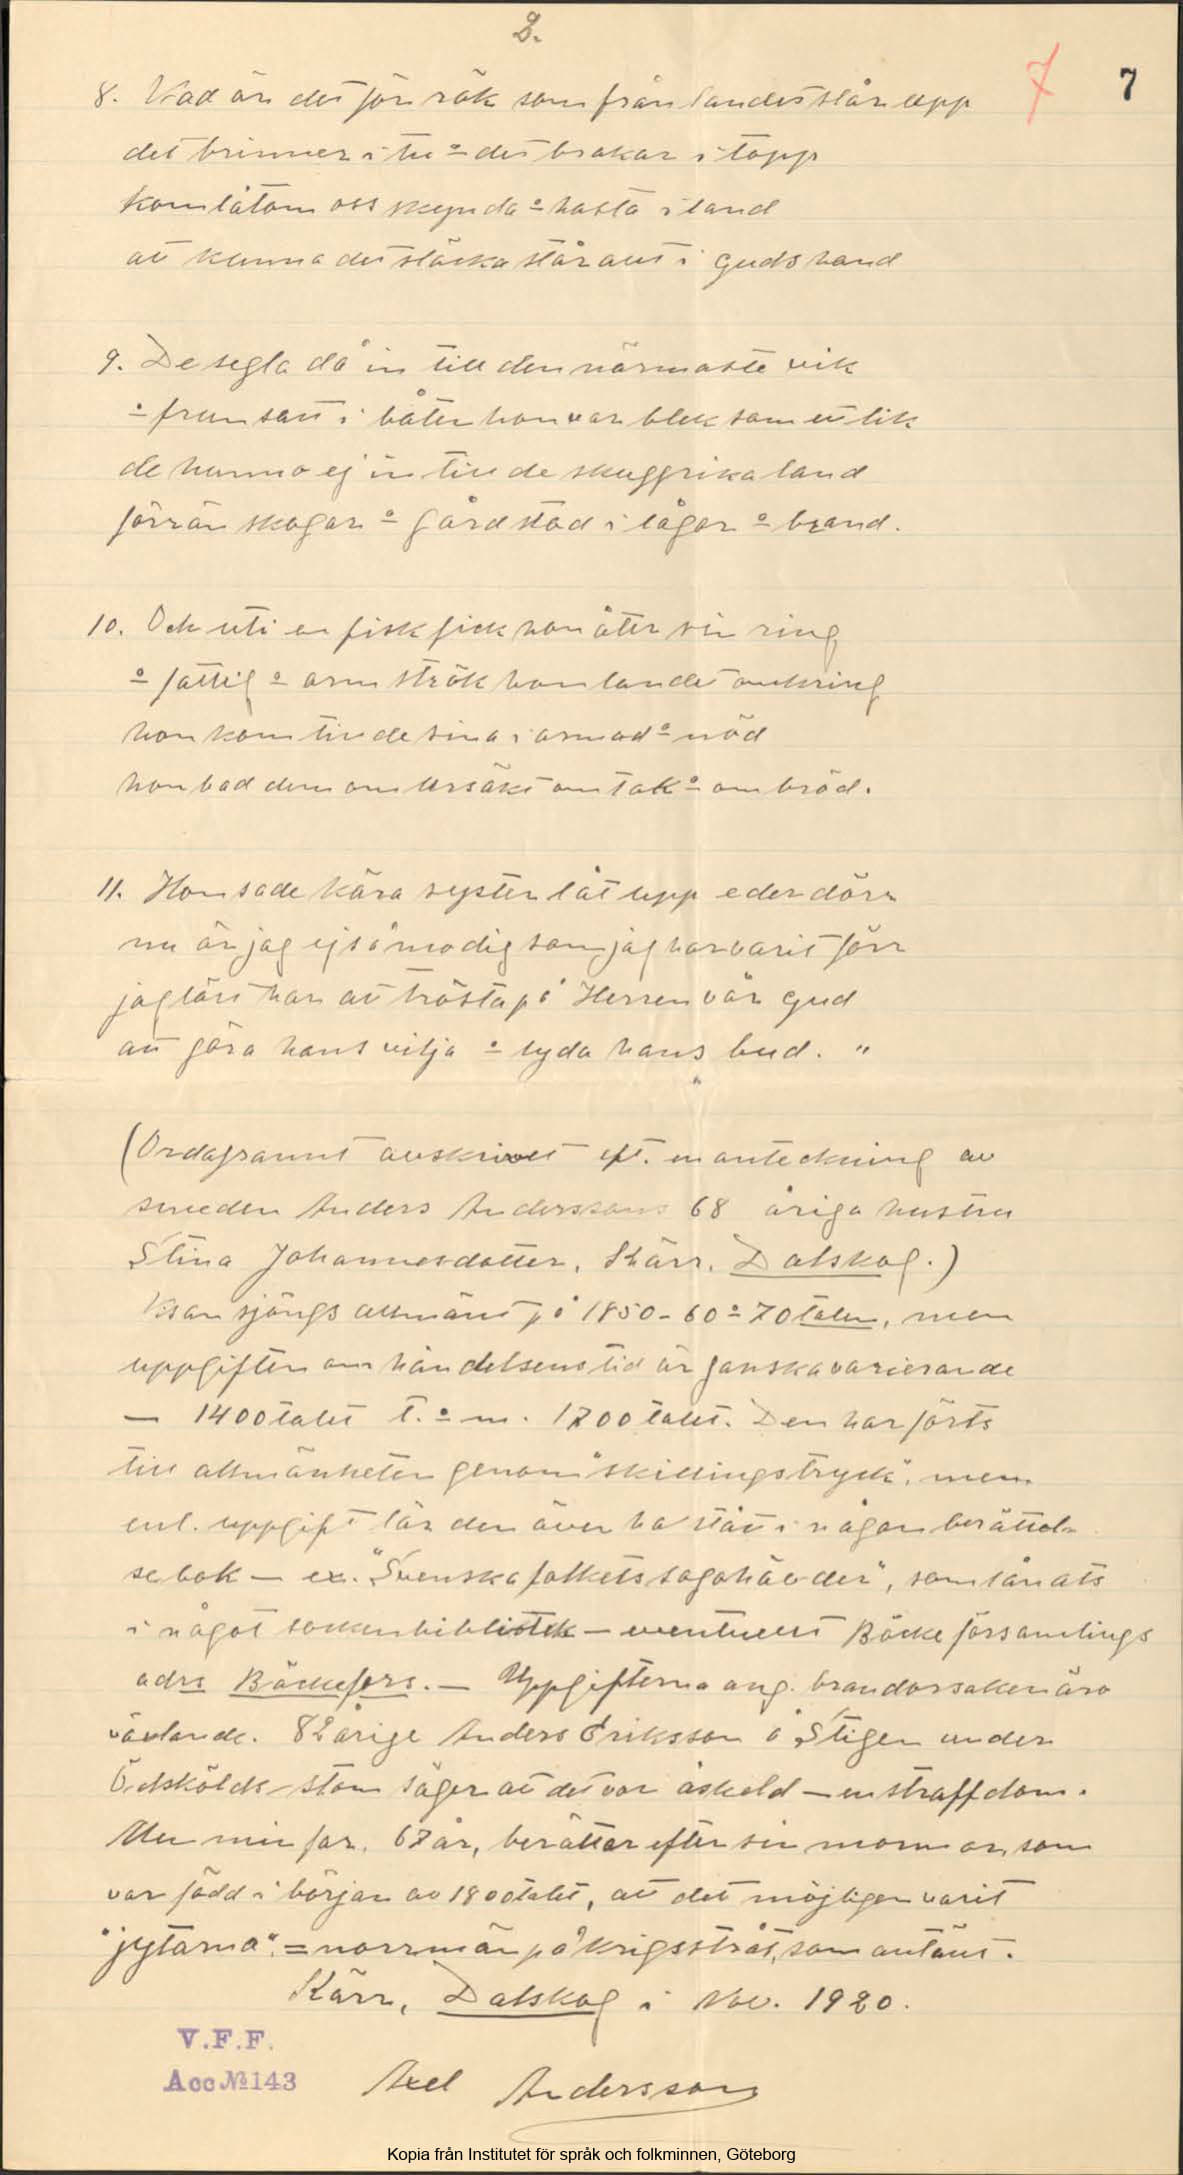 2.
7 7
8. Vad är det för rök som från landet slår upp
det brinner i tre o det brakar i topp
kom låtom oss skynda o hasta i land
att kunna det släcka står allt i Guds hand
9. De segla då in till den närmaste vik
o frun satt i båten hon var blek som ett lik
de hunno ej in till de skuggrika land
förrän skogar o gård stod i lågor o brand.
10. Och uti en fisk fick hon åter sin ring
o fattig o arm strök hon landet omkring
hon kom till de sina i armod o nöd
hon bad dem om ursäkt om tak o om bröd.
11. Hon sade kära syster låt upp eder dörr
nu är jag ej så modig som jag har varit förr
jag lärt har att trösta på Herren vår Gud
att göra hans vilja o lyda hans bud. "
(Ordagrannt avskrivet eft. en anteckning av
smeden Anders Anderssons 68 åriga hustru
Stina Johannesdotter, Kärr, Dalskog.)
Visan sjöngs allmänt på 1850-60 o 70 talen, men
uppgiften om händelsens tid är ganska varierande
— 1400talet t. o m. 1700talet. Den har förts
till allmänheten genom "skillingstryck", men
enl. uppgift lär den även ha stått i någon berättel-
sebok — ex. "Svenska folkets sagohävder", som lånats
i något sockenbibliotek — eventuellt Bäcke församlings
adrs Bäckefors. — Uppgifterna ang. brandorsaken äro
växlande. 82 årige Anders Eriksson å Stigen under
Ödskölds-stom säger att det var åskeld — en straffdom.
Men min far, 67 år, berättar efter sin mormor, som
var född i början av 1800talet, att det möjligen varit
"jytarna" = norrmän på krigsstråt, som antänt.
Kärr, Dalskog i Nov. 1920.
V.F.F.
Acc № 143
Axel Andersson
Kopia från Institutet för språk och folkminnen, Göteborg